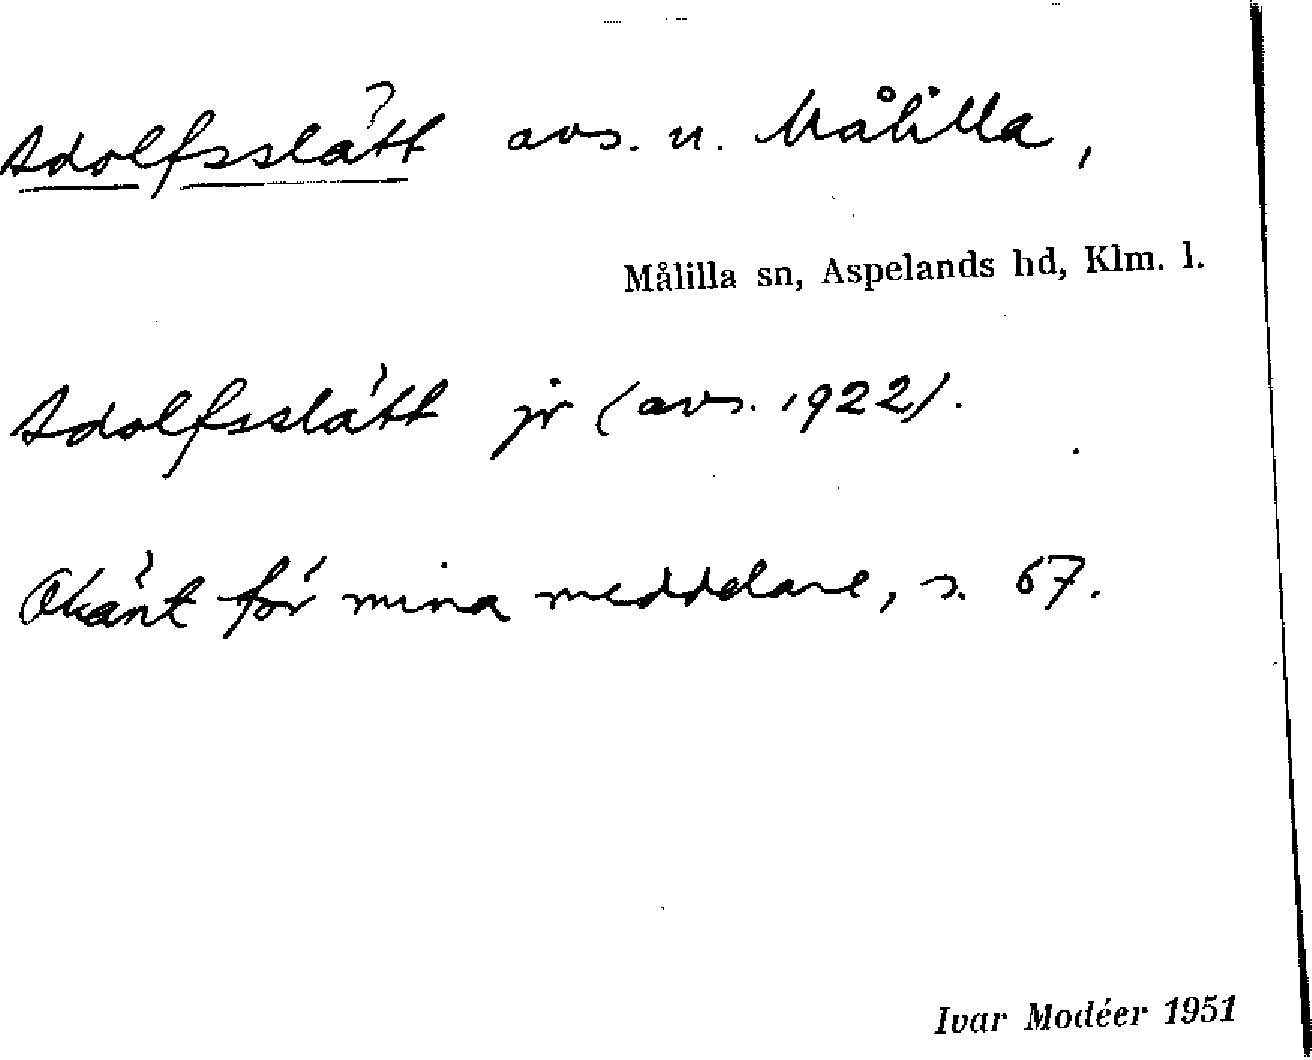 Adolfsslätt avs. u. Målilla,
Målilla sn, Aspelands hd, Klm. l.
Adolfsslätt jr (avs. 1922).
Okänt för mina meddelare, s. 67.
Ivar Modéer 1951